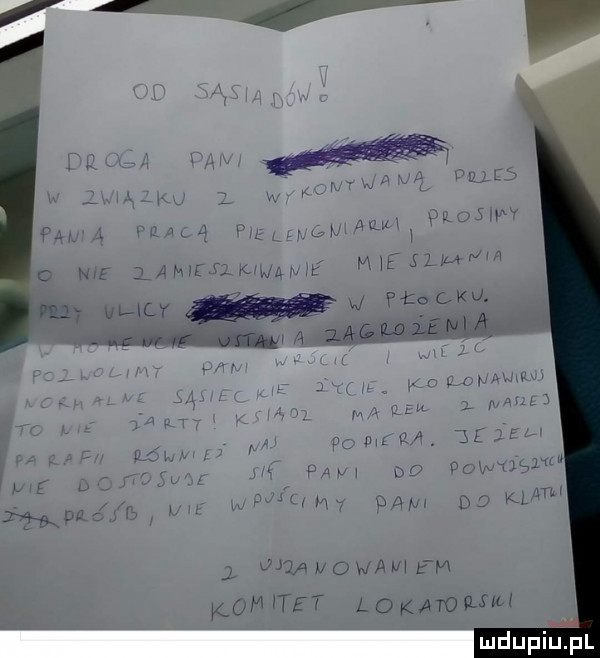 OD SĄSIADÓW!
DROGA PANI
W ZWIĄZKU Z WYKONYWANĄ PRZES
PANIĄ PRACĄ PIELENGNIARKI, PROSIMY
O NIE ZAMIESZKIWANIE MIESZKANIA
PRZY ULICY W PŁOCKU.
W MOMENCIE USTANIA ZAGROŻENIA
POZWOLIMY PANI WRÓCIĆ I WIEŹĆ
NORMALNE SĄSIECKIE ŻYCIE. KORONAWIRUS
TO NIE ŻARTY! KSIĄDZ MAREK Z NASZEJ
PARAFII RÓWNIEŻ NAS POPIERA. JEŻELI
NIE DOSTOSUJE SIĘ PANI DO POWYŻSZYCH
PRÓŚB, NIE WPUŚCIMY PANI DO KLATKI
Z USZANOWANIEM
KOMITET LOKATORSKI
mdupiu.pl